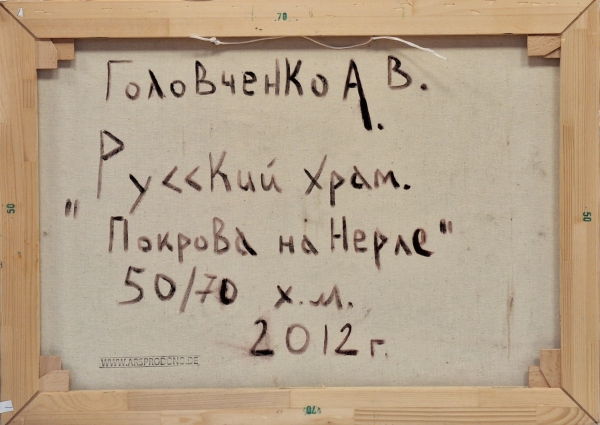 70
Головченко А. В.
Русский храм.
"Покрова на Нерле"
50/70 х.м.
2012 г.
50
50
WWW.ARSPRODONO.DE
70